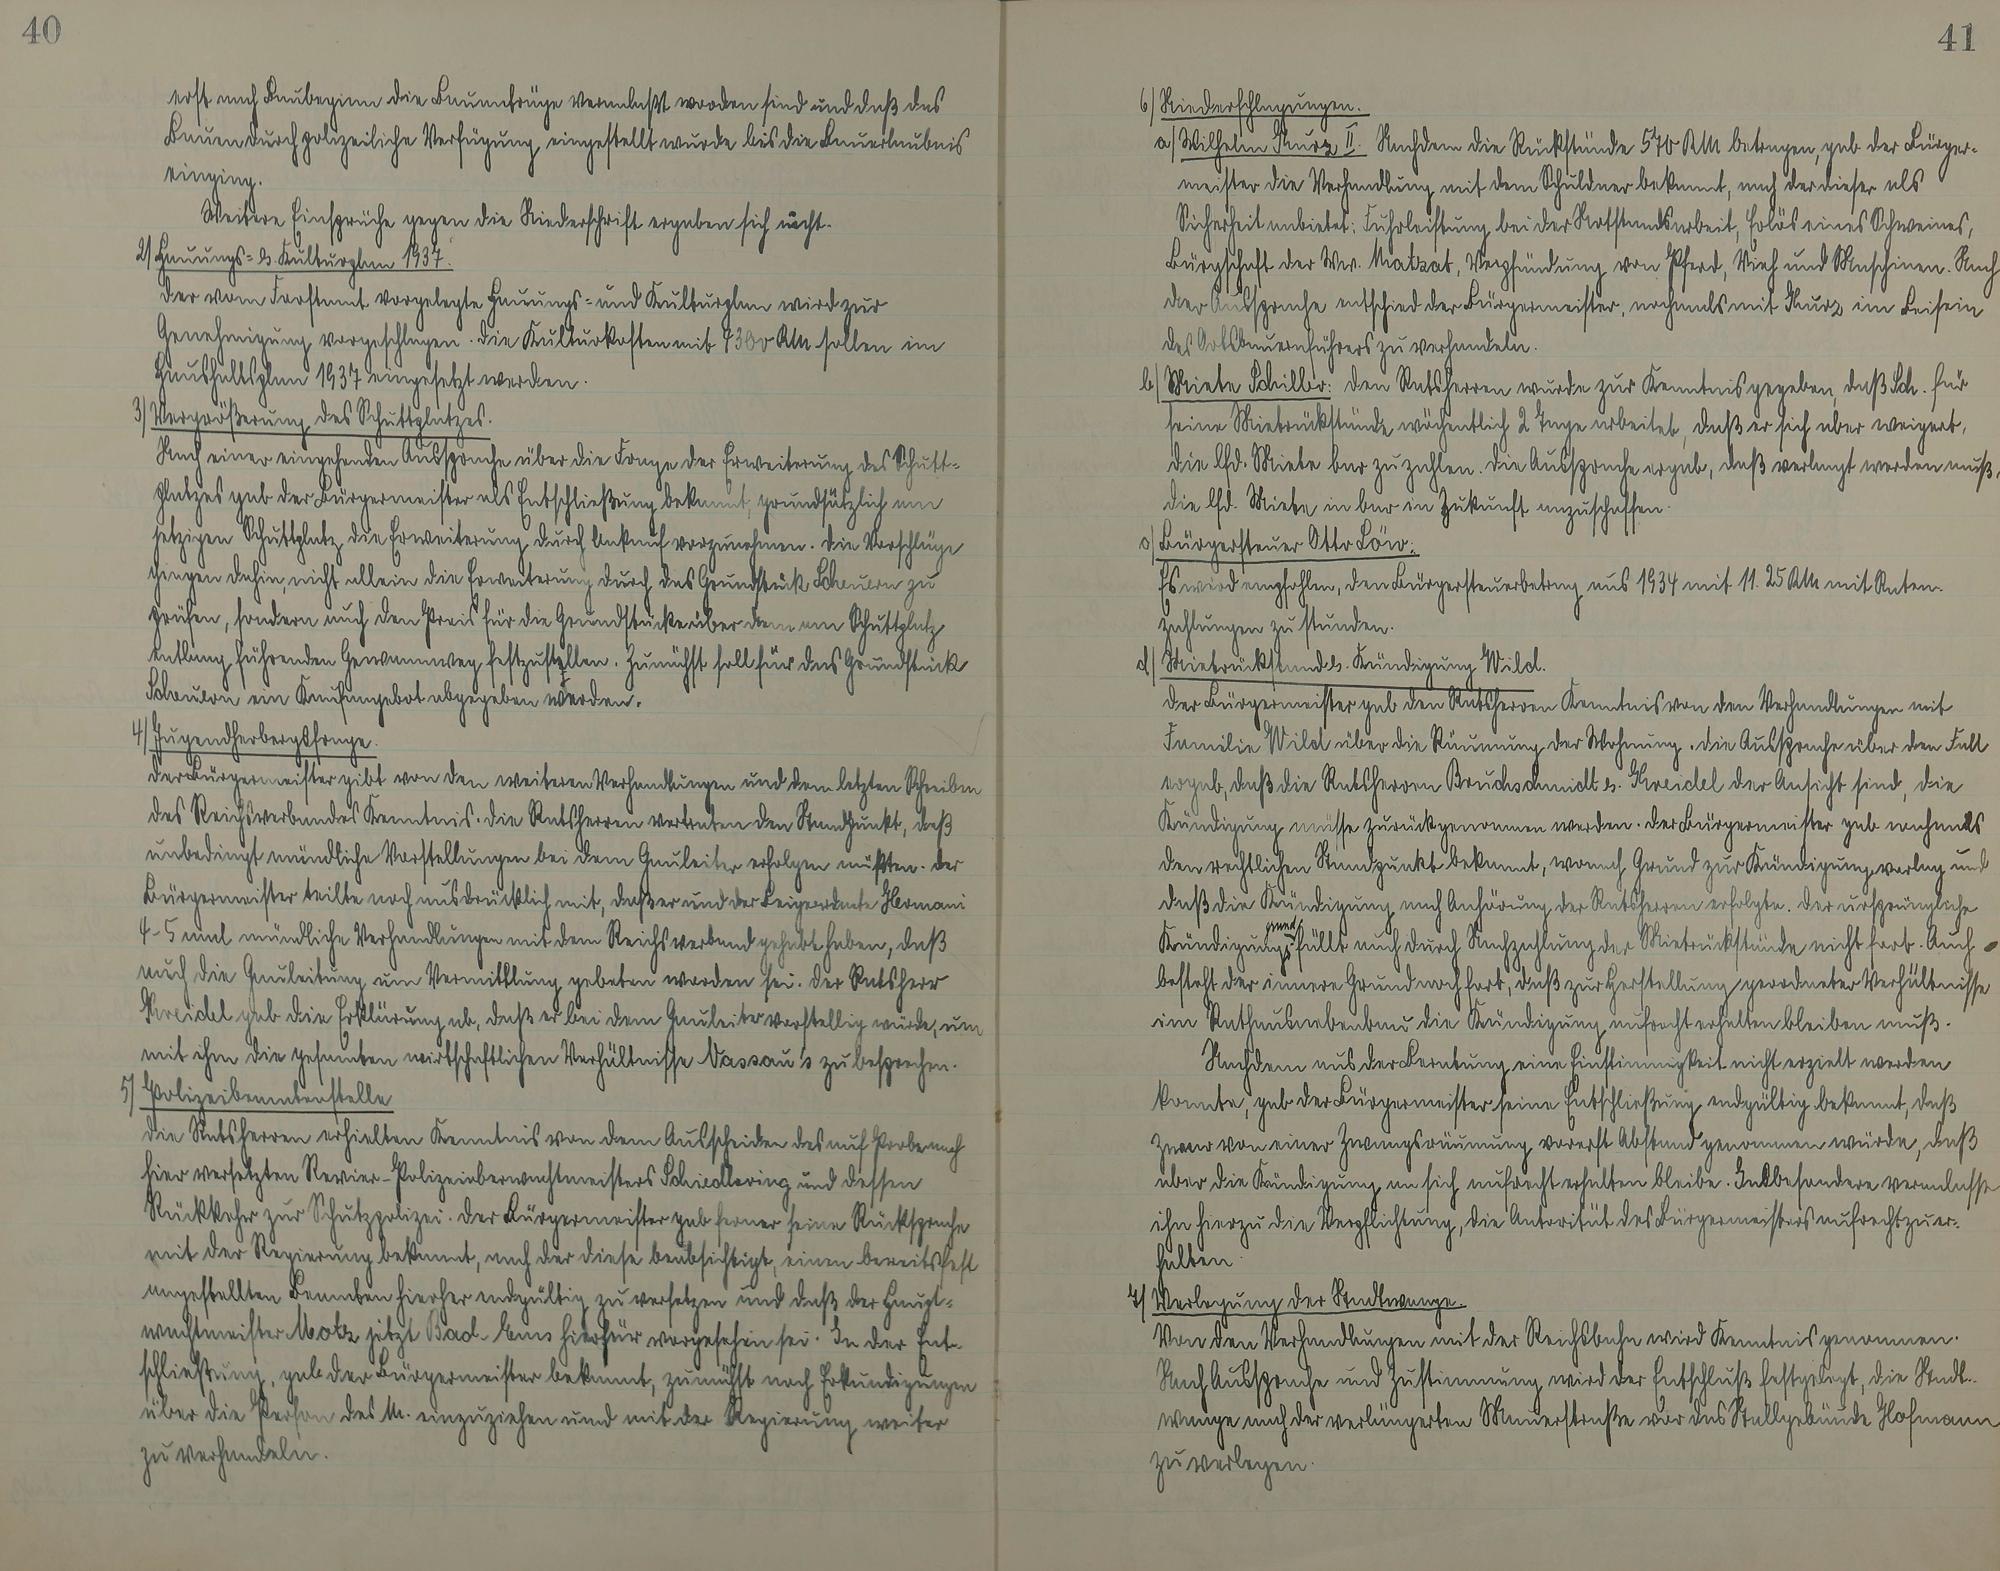 40
erst nach Baubeginn die Bauanträge veranlaßt worden sind und daß das
Bauen durch polizeiliche Verfügung eingestellt wurde bis die Bauerlaubnis
einging.
Weitere Einsprüche gegen die Niederschrift ergaben sich nicht.
2) Hauungs- u. Kulturplan 1937.
Der vom Forstamt vorgelegte Hauungs- und Kulturplan wird zur
Genehmigung vorgeschlagen. Die Kulturkosten mit 4300 RM sollen im
Haushaltsplan 1937 eingesetzt werden.
3) Vergrößerung des Schuttplatzes.
Nach einer eingehenden Aussprache über die Frage der Erweiterung des Schutt-
platzes gab der Bürgermeister als Entschließung bekannt, grundsätzlich am
jetzigen Schuttplatz die Erweiterung durch Ankauf vorzunehmen. Die Vorschläge
gingen dahin, nicht allein die Erweiterung durch das Grundstück Scheuern zu
prüfen, sondern auch den Preis für die Grundstücke über dem am Schuttplatz
entlang führenden Gewannweg festzustellen. Zunächst soll für das Grundstück
Scheuern ein Kaufangebot abgegeben werden.
4) Jugendherbergsfrage.
Der Bürgermeister gibt von den weiteren Verhandlungen und dem letzten Schreiben
des Reichsverbandes Kenntnis. Die Ratsherren vertraten den Standpunkt, daß
unbedingt mündliche Vorstellungen bei dem Gauleiter erfolgen müßten. Der
Bürgermeister teilte noch ausdrücklich mit, daß er und der Beigeordnete Hermani
4-5 mal mündliche Verhandlungen mit dem Reichsverband gehabt haben, daß
auch die Gauleitung um Vermittlung gebeten worden sei. Der Ratsherr
Kreidel gab die Erklärung ab, daß er bei dem Gauleiter vorstellig würde, um
mit ihm die gesamten wirtschaftlichen Verhältnisse Nassau's zu besprechen.
5) Polizeibeamtenstelle
Die Ratsherren erhielten Kenntnis von dem Ausscheiden des auf Probe nach
hier versetzten Revier-Polizeioberwachtmeisters Schiedering und dessen
Rückkehr zur Schutzpolizei. Der Bürgermeister gab ferner seine Rücksprache
mit der Regierung bekannt, nach der diese beabsichtigt, einen bereits fest
angestellten Beamten hierher endgültig zu versetzen und daß der Haupt-
wachtmeister Motz jetzt Bad-Ems hierfür vorgesehen sei. In der Ent-
schließung, gab der Bürgermeister bekannt, zunächst noch Erkundigungen
über die Person des M. einzuziehen und mit der Regierung weiter
zu verhandeln.
41
6) Niederschlagungen.
a) Wilhelm Kurz II. Nachdem die Rückstände 570 RM betragen, gab der Bürger-
meister die Verhandlung mit dem Schuldner bekannt, nach der dieser als
Sicherheit anbietet: Fuhrleistung bei der Notstandsarbeit, Erlös eines Schweines,
Bürgschaft der Wwe. Matzat, Verpfändung von Pferd, Vieh und Maschinen. Nach
der Aussprache entschied der Bürgermeister, nochmals mit Kurz im Beisein
des Ortsbauernführers zu verhandeln.
b) Miete Schiller: Den Ratsherren wurde zur Kenntnis gegeben, daß Sch. für
seine Mietrückstände wöchentlich 2 Tage arbeitet, daß er sich aber weigert,
die lfd. Miete bar zu zahlen. Die Aussprache ergab, daß verlangt werden muß,
die lfd. Miete in bar in Zukunft anzuschaffen.
c) Bürgersteuer Otto Löw:
Es wird empfohlen, den Bürgersteuerbetrag aus 1934 mit 11.25 RM mit Raten-
zahlungen zu stunden.
d) Mietrückstand u. Kündigung Wild.
Der Bürgermeister gab den Ratsherren Kenntnis von den Verhandlungen mit
Familie Wild über die Räumung der Wohnung. Die Aussprache über den Fall
ergab, daß die Ratsherren Bruchschmidt u. Kreidel der Ansicht sind, die
Kündigung müsse zurückgenommen werden. Der Bürgermeister gab nochmals
den rechtlichen Standpunkt bekannt, wonach Grund zur Kündigung vorlag und
daß die Kündigung nach Anhörung der Ratsherren erfolgte. Der ursprüngliche
Kündigungsgrund fällt auch durch Nachzahlung der Mietrückstände nicht fort. Auch
besteht der innere Grund noch fort, daß zur Herstellung geordneter Verhältnisse
im Rathausnebenbau die Kündigung aufrecht erhalten bleiben muß.
Nachdem aus der Beratung eine Einstimmigkeit nicht erzielt werden
konnte, gab der Bürgermeister seine Entschließung endgültig bekannt, daß
zwar von einer Zwangsräumung vorerst Abstand genommen würde, daß
aber die Kündigung an sich aufrecht erhalten bleibe. Insbesondere veranlasse
ihn hierzu die Verpflichtung, die Autorität des Bürgermeisters aufrechtzuer-
halten.
7) Verlegung der Stadtwaage.
Von den Verhandlungen mit der Reichsbahn wird Kenntnis genommen.
Nach Aussprache und Zustimmung wird der Entschluß festgelegt, die Stadt-
waage nach der verlängerten Mauerstraße vor das Stallgebäude Hofmann
zu verlegen.